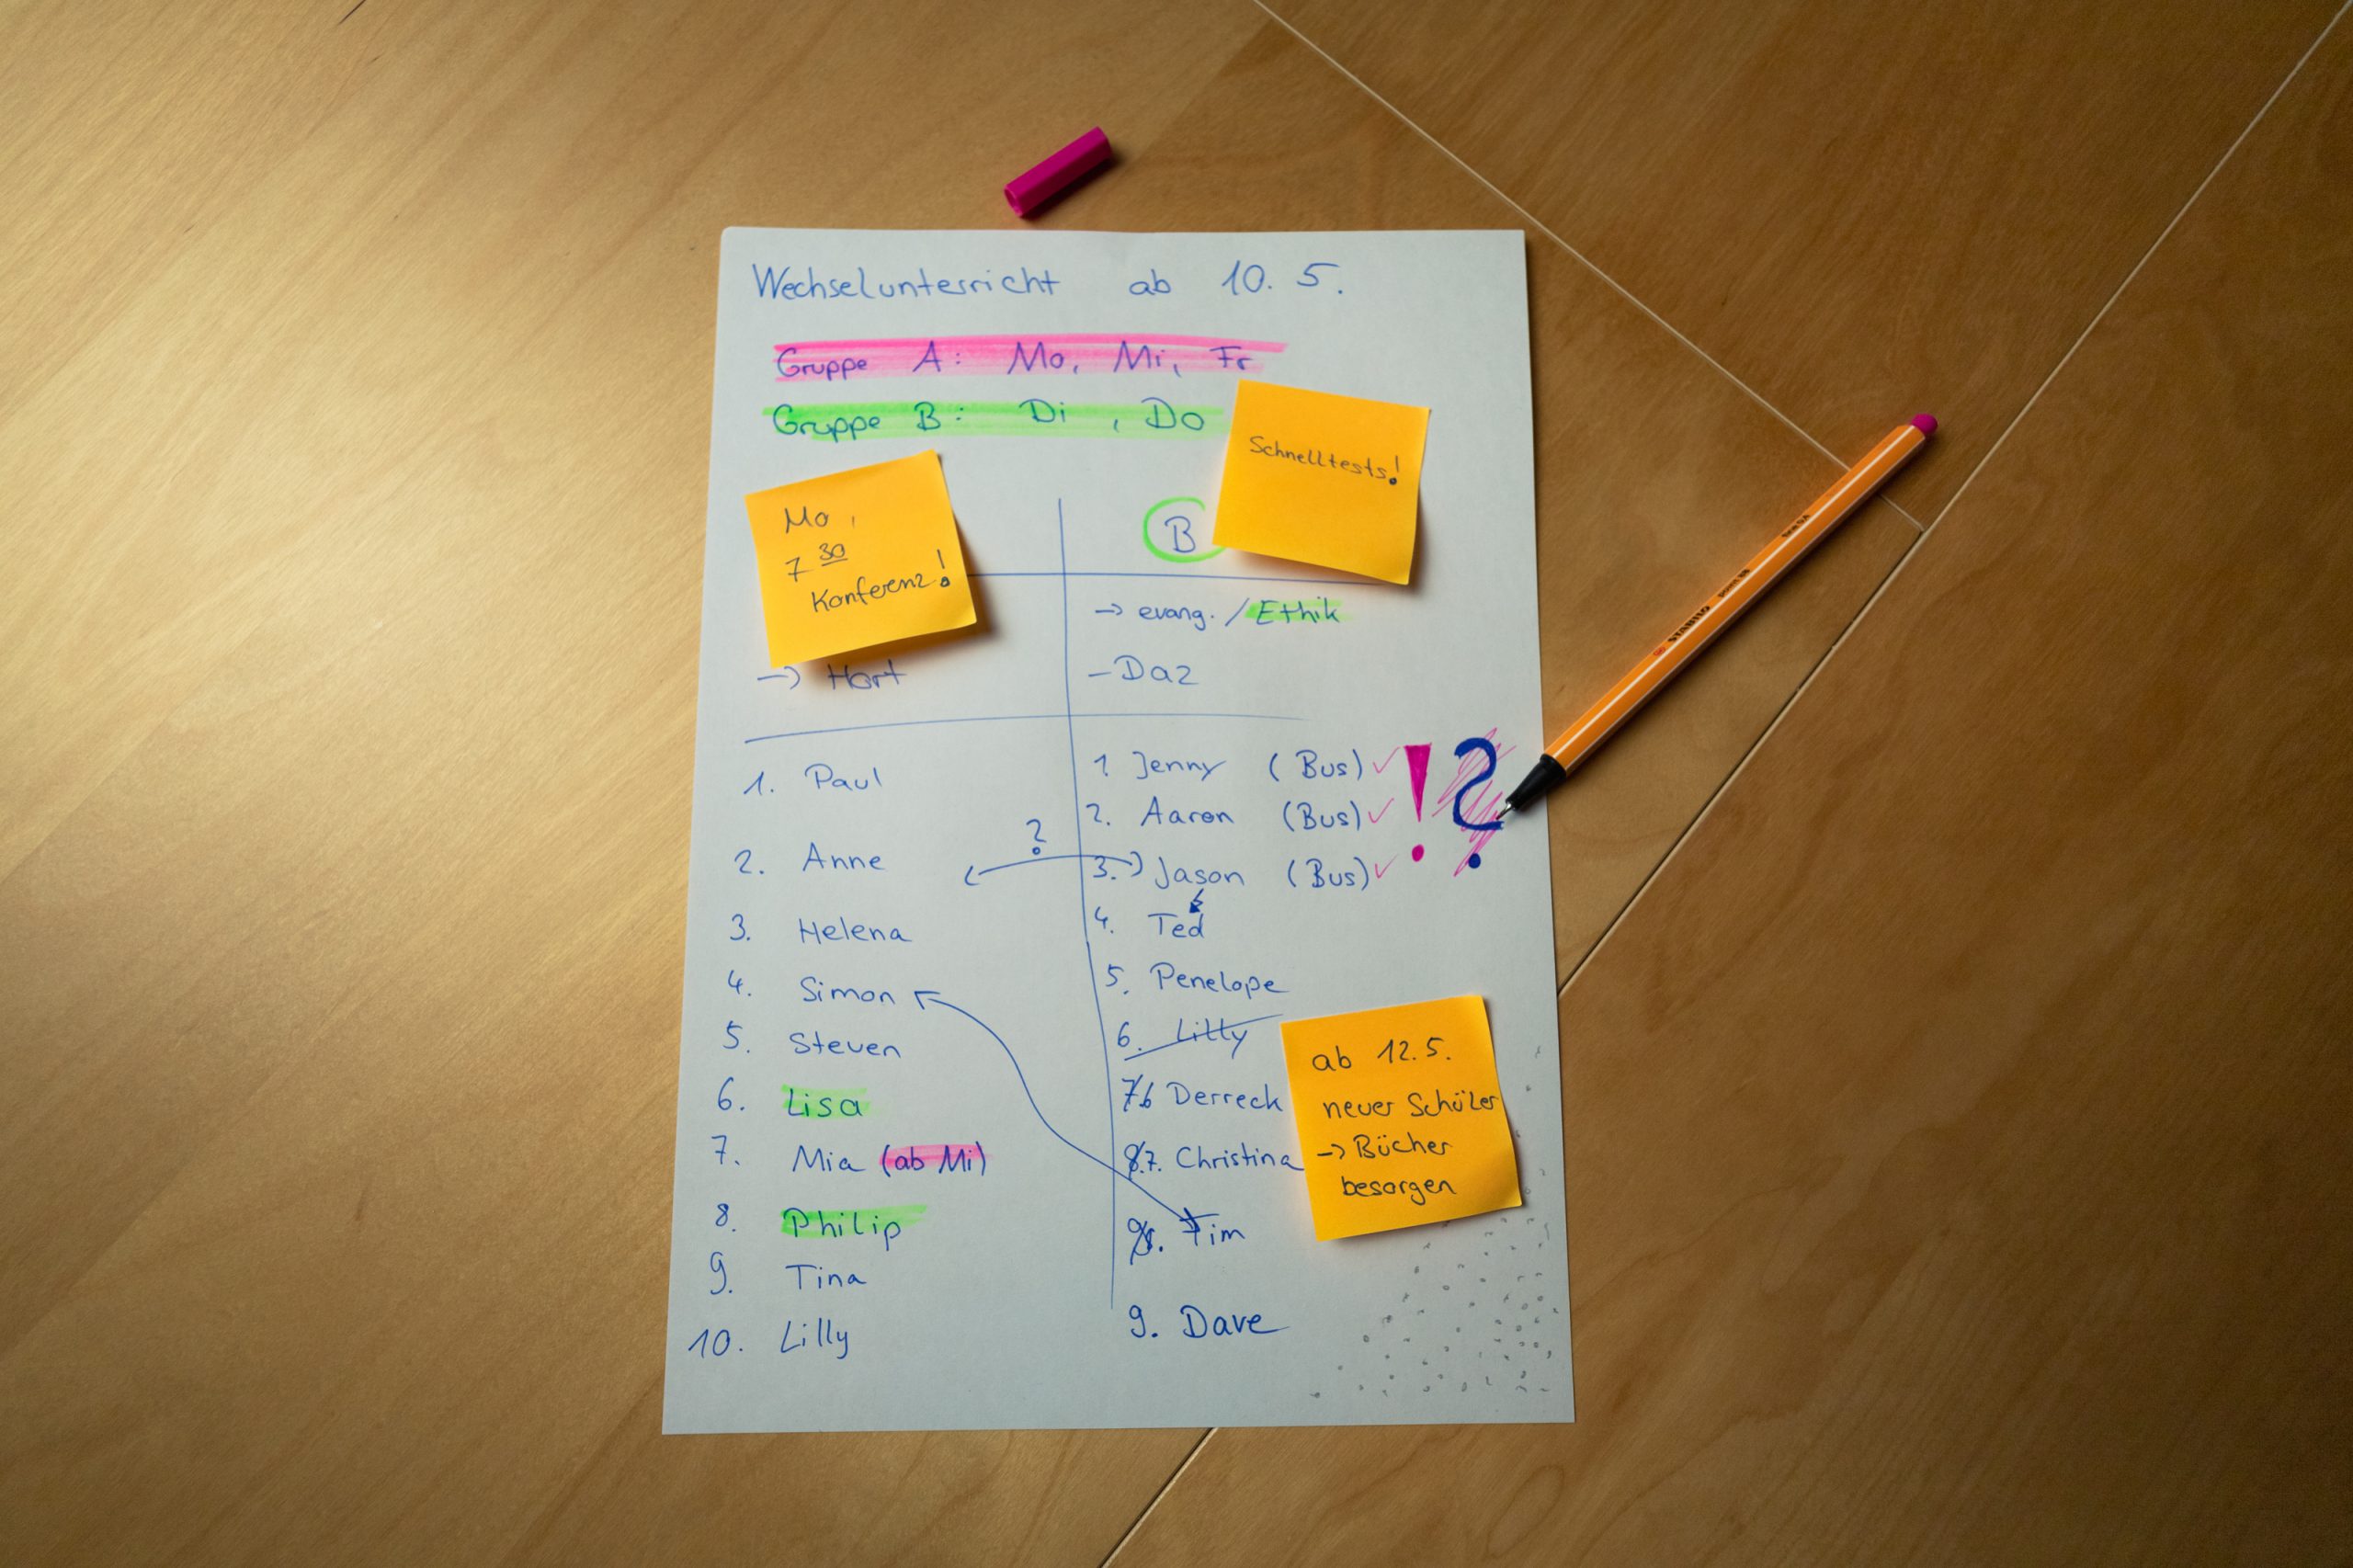 Wechselunterricht ab 10. 5.
Gruppe A: Mo, Mi, Fr
Gruppe B: Di, Do
Schnelltests!
Mo,
7 30
Konferenz!
B
→ evang. / Ethik
→ Hort
- Daz
1. Paul
2. Anne
3. Helena
4. Simon
5. Steven
6. Lisa
7. Mia (ab Mi)
8. Philip
9. Tina
10. Lilly
?
1. Jenny (Bus) ✓
2. Aaron (Bus) ✓
3. Jason (Bus) ✓
! ?
4. Ted
5. Penelope
6. Lilly
7 6 Derreck
8. 7. Christina
9 8. Tim
9. Dave
ab 12.5.
neuer Schüler
→ Bücher
besorgen
STABILO